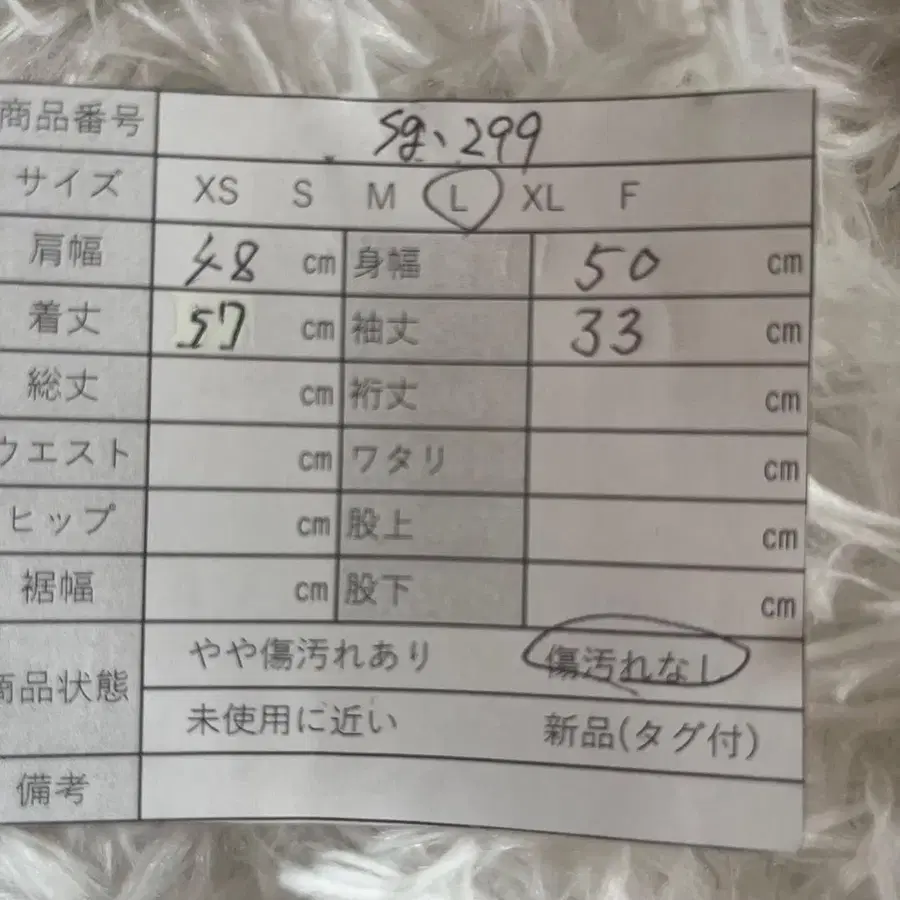 商品番号 sg、299
サイズ XS S M L XL F
肩幅 48 cm 身幅 50 cm
着丈 57 cm 袖丈 33 cm
総丈 cm 裄丈 cm
ウエスト cm ワタリ cm
ヒップ cm 股上 cm
裾幅 cm 股下 cm
商品状態 やや傷汚れあり 傷汚れなし
未使用に近い 新品(タグ付)
備考